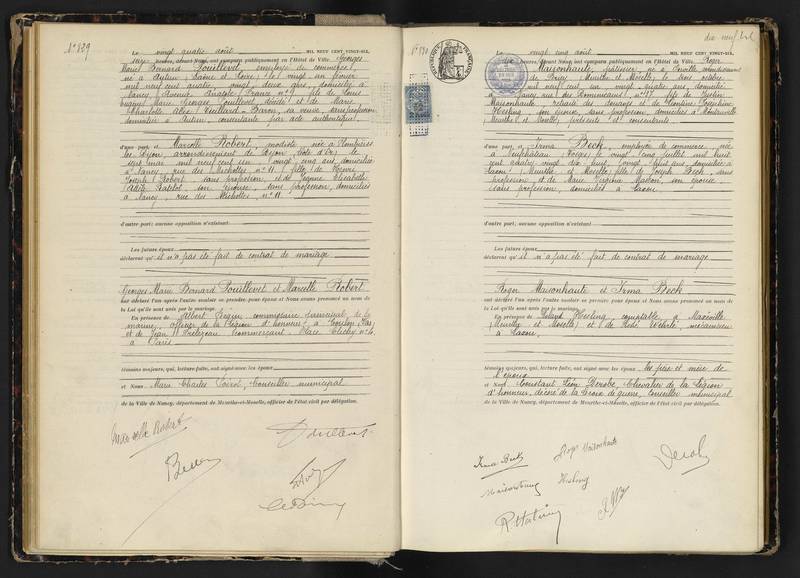 N° 829
Le vingt quatre août MIL NEUF CENT VINGT-SIX,
six heures, devant Nous, ont comparu publiquement en l'Hôtel de Ville Georges
Marie Bernard Pouillevet, employé de commerce,
né à Autun (Saône et Loire) le vingt un février
mil neuf cent quatre, vingt deux ans, domicilié à
Nancy, Avenue Anatole France n° 9 fils de Louis
Eugène Marie Georges Pouillevet décédé et de Marie
Charlotte Baron, sa veuve, sans profession
domiciliée à Autun, consentante par acte authentique.
d'une part, et Marcelle Robert, modiste, née à Plombières
les Dijon, arrondissement de Dijon, Côte d'Or, le
mil neuf cent un vingt cinq ans, domiciliée
à Nancy, rue des Michottes n° 11, fille de
Joseph Robert, sans profession, et de Jeanne Elisabeth
son épouse, sans profession, domiciliés
à Nancy, rue des Michottes n° 11.
d'autre part; aucune opposition n'existant
Les futurs époux
déclarent qu'il n'a pas été fait de contrat de mariage
Georges Marie Bernard Pouillevet et Marcelle Robert
ont déclaré l'un après l'autre vouloir se prendre pour époux et Nous avons prononcé au nom de
la Loi qu'ils sont unis par le mariage.
En présence de Albert commissaire principal de la
marine, officier de la Légion d'honneur, à Toulon
et de Jean commerçant, Place Clichy n° 4
à Paris
témoins majeurs, qui, lecture faite, ont signé avec les époux
et Nous Marc Charles conseiller municipal
de la Ville de Nancy, département de Meurthe-et-Moselle, officier de l'état civil par délégation.
Marcelle Robert
N° 830
dix neuf
Le vingt cinq août MIL NEUF CENT VINGT-SIX,
dix heures, devant Nous, ont comparu publiquement en l'Hôtel de Ville Roger
Maisonhaute, pâtissier, né à arrondissement
de Briey (Meurthe et Moselle), le trois octobre
mil neuf cent un, vingt quatre ans, domicilié
à Nancy, rue n° 17, fils de
Maisonhaute, retraité des douanes et de Léontine
Hesling, son épouse, sans profession, domiciliés à
Meurthe et Moselle, présents et consentants
d'une part, et Irma Beck, employée de commerce, née
à Neufchâteau (Vosges) le vingt cinq juillet mil huit
cent quatre vingt dix huit, vingt huit ans, domiciliée à
Laxou (Meurthe et Moselle) fille de Joseph Beck, sans
profession et de Marie Masson, son épouse,
sans profession, domiciliés à Laxou
d'autre part; aucune opposition n'existant
Les futurs époux
déclarent qu'il n'a pas été fait de contrat de mariage
Roger Maisonhaute et Irma Beck
ont déclaré l'un après l'autre vouloir se prendre pour époux et Nous avons prononcé au nom de
la Loi qu'ils sont unis par le mariage.
En présence de Hesling comptable, à Maxéville
(Meurthe et Moselle) et de René mécanicien
à Laxou,
témoins majeurs, qui, lecture faite, ont signé avec les époux les père et mère de
l'époux
et Nous Constant Léon Chevalier de la Légion
d'honneur, décoré de la Croix de guerre, conseiller municipal
de la Ville de Nancy, département de Meurthe-et-Moselle, officier de l'état civil par délégation.
Irma Beck
Roger Maisonhaute
Maisonhaute
Hesling